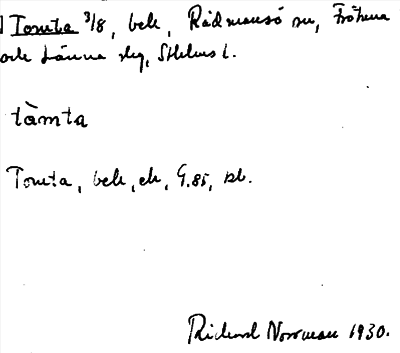 ] Tomta 3/8, bek, Rådmansö sn, Fröhuna
och Länna slg, Sthlms l.
tàmta
Tomta, bek, ek, G.85, sb.
Rickard Norrman 1930.